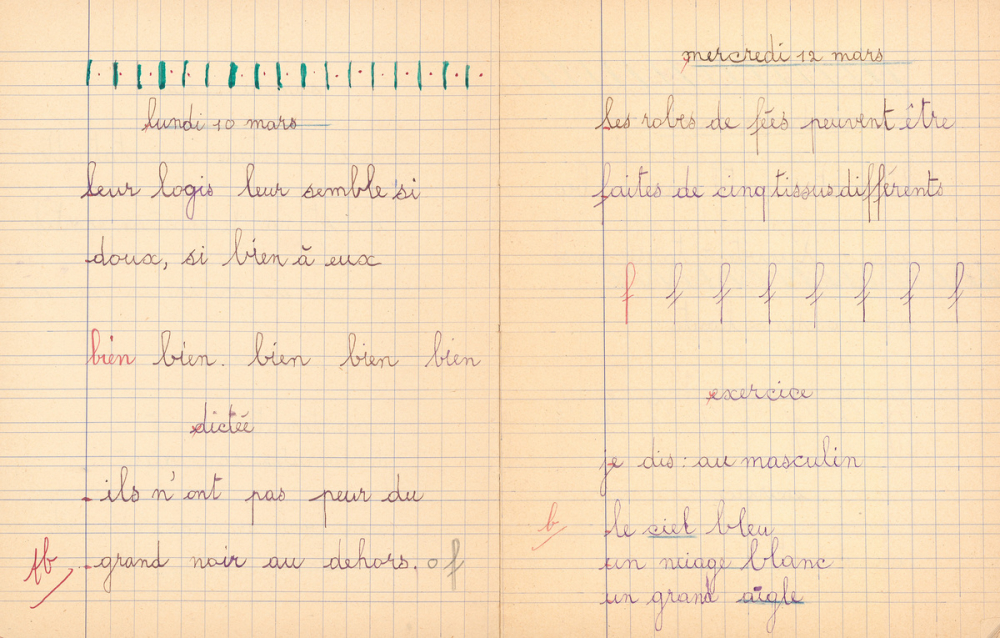 lundi 10 mars
leur logis leur semble si
doux, si bien à eux
bien bien. bien bien bien
dictée
- ils n'ont pas peur du
- grand noir au dehors. of
tb
mercredi 12 mars
les robes de fées peuvent être
faites de cinq tissus différents
f f f f f f f f
exercice
je dis : au masculin
b
le ciel bleu
un nuage blanc
un grand aigle